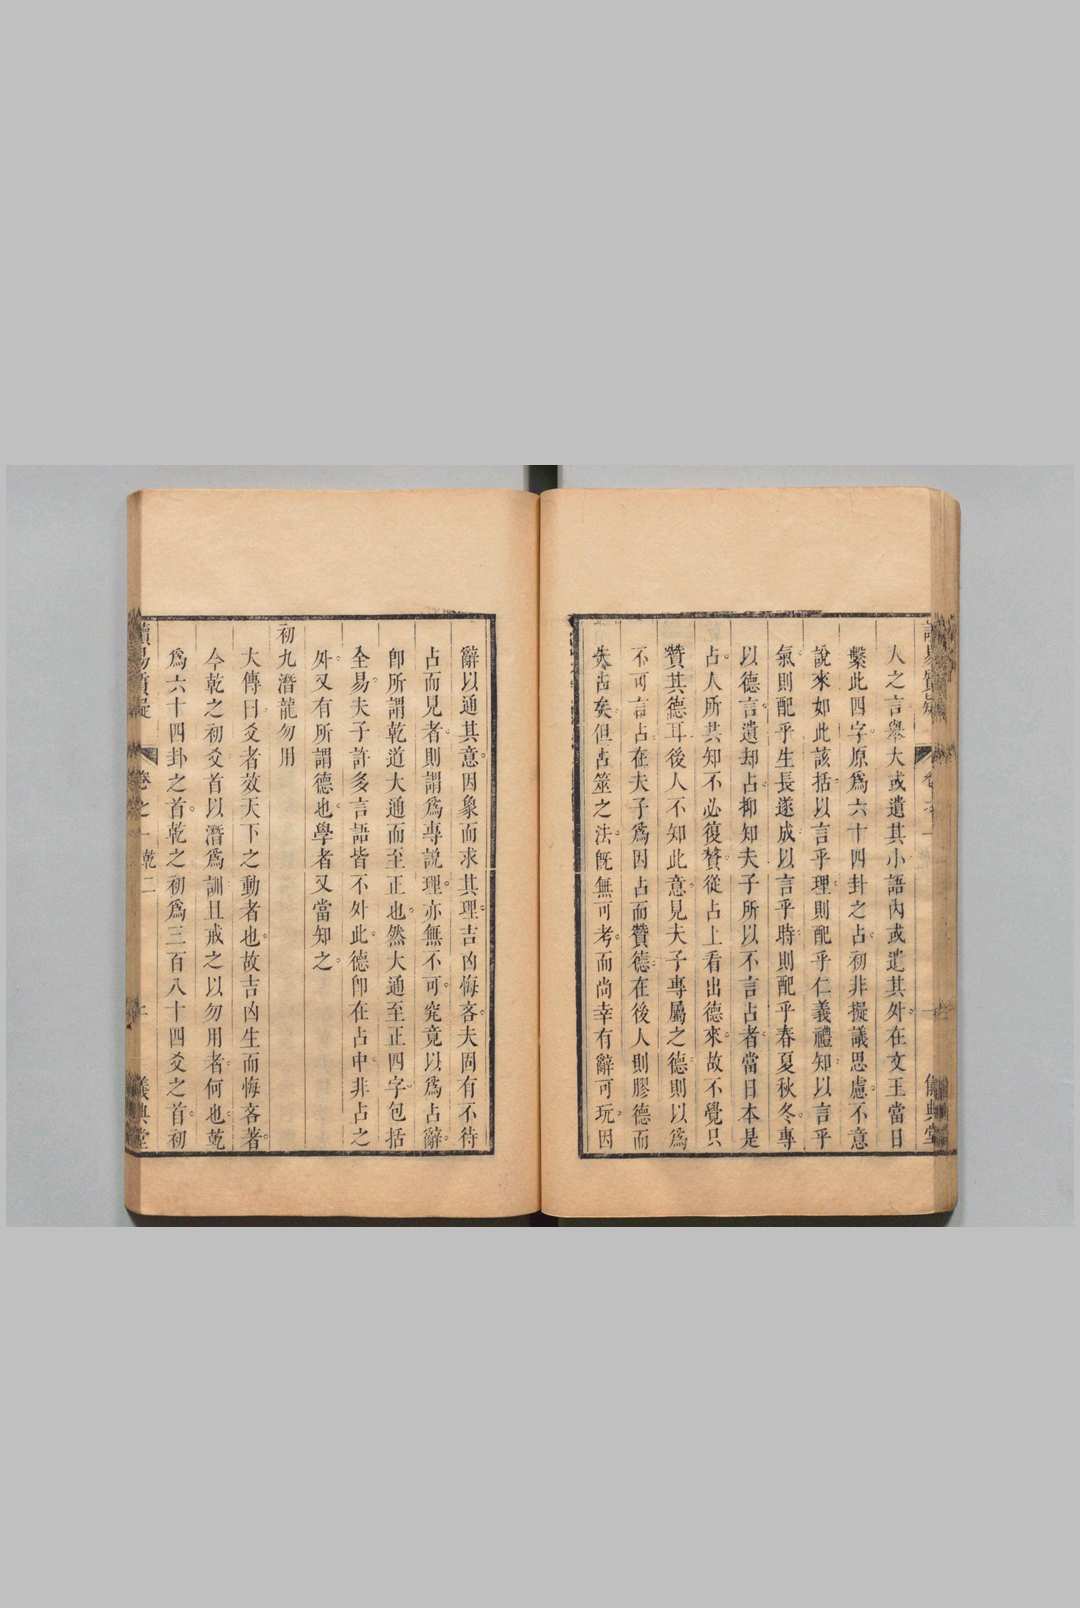 人之言舉大或遺其小語內或遺其外在文王當日
繫此四字原爲六十四卦之占初非擬議思慮不意
說來如此該括以言乎理則配乎仁義禮知以言乎
氣則配乎生長遂成以言乎時則配乎春夏秋冬專
以德言遺却占抑知夫子所以不言占者當日本是
占人所共知不必復贅從占上看出德來故不覺只
贊其德耳後人不知此意見夫子專屬之德則以爲
不可言占在夫子爲因占而贊德在後人則膠德而
失占矣但占筮之法旣無可考而尚幸有辭可玩因
辭以通其意因象而求其理吉凶悔吝夫固有不待
占而見者則謂爲專說理亦無不可究竟以爲占辭
卽所謂乾道大通而至正也然大通至正四字包括
全易夫子許多言語皆不外此德卽在占中非占之
外又有所謂德也學者又當知之
初九潛龍勿用
大傳曰爻者效天下之動者也故吉凶生而悔吝著
今乾之初爻首以潛爲訓且戒之以勿用者何也乾
爲六十四卦之首乾之初爲三百八十四爻之首初
讀易質疑
卷之一
乾二
儀典堂